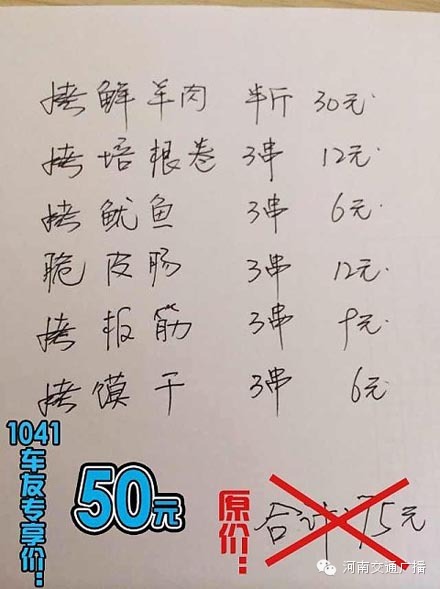 拷鲜羊肉 半斤 30元.
拷培根卷 3串 12元.
拷鱿鱼 3串 6元.
脆皮肠 3串 12元.
拷板筋 3串 9元.
拷馍干 3串 6元.
1041车友专享价:
50元
原价:
合计:75元
河南交通广播